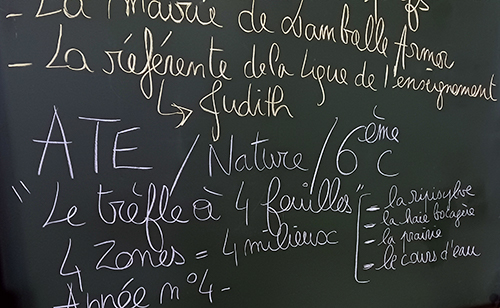 - La Mairie de Lamballe Armor
- La référente de la Ligue de l'enseignement
↳ Judith
ATE / Nature / 6ème C
"Le trèfle à 4 feuilles"
4 zones = 4 milieux
- la ripisylve
- la haie bocagère
- la prairie
- le cours d'eau
Année n°4-